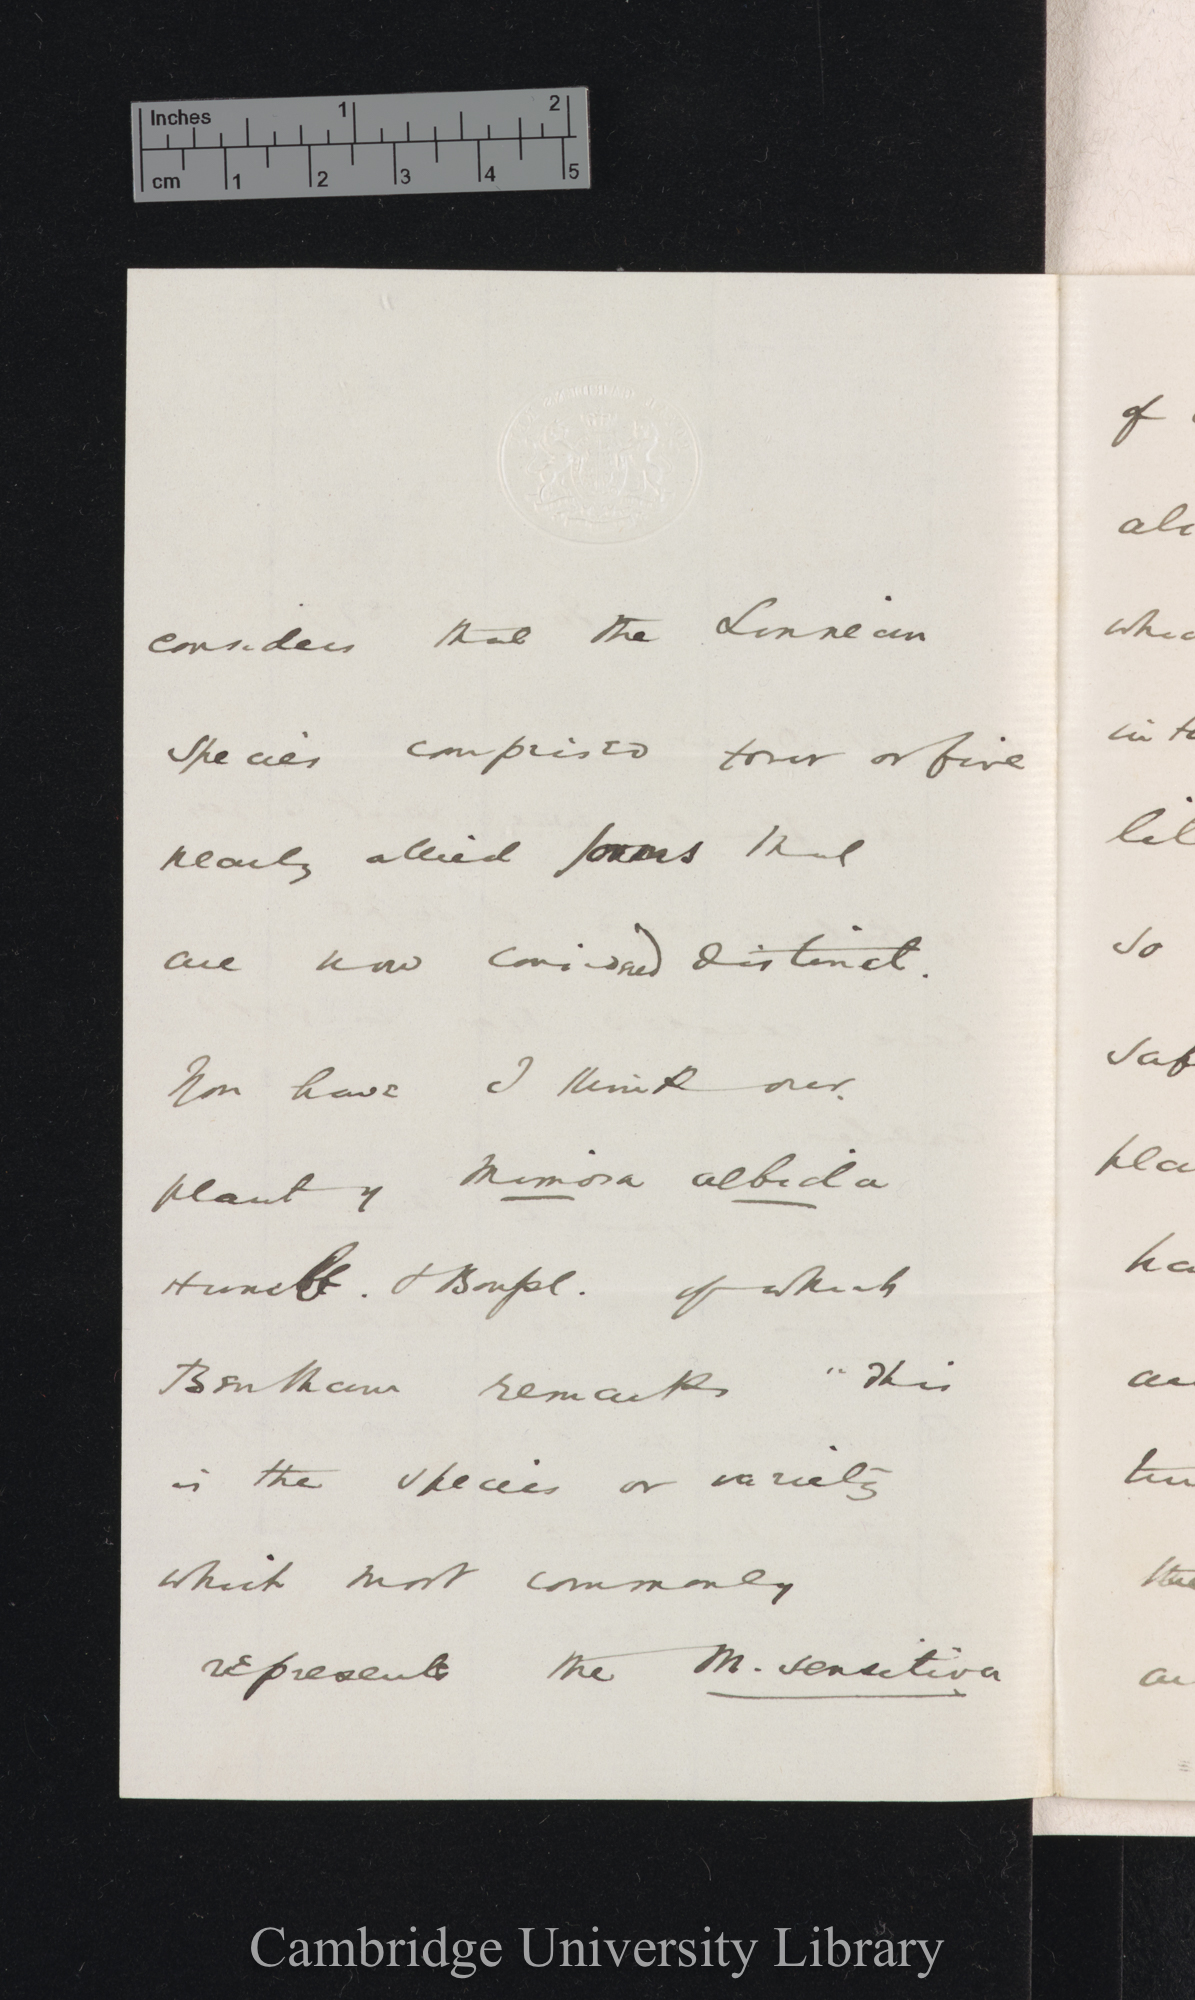 Inches 1 2
cm 1 2 3 4 5
considers that the Linnean
species comprised four or five
nearly allied forms that
are now considered distinct.
You have I think our
plant of Mimosa albida
Humb. & Bonpl. of which
Bentham remarks "This
is the species or variety
which most commonly
represents the M. sensitiva
of
so
Cambridge University Library